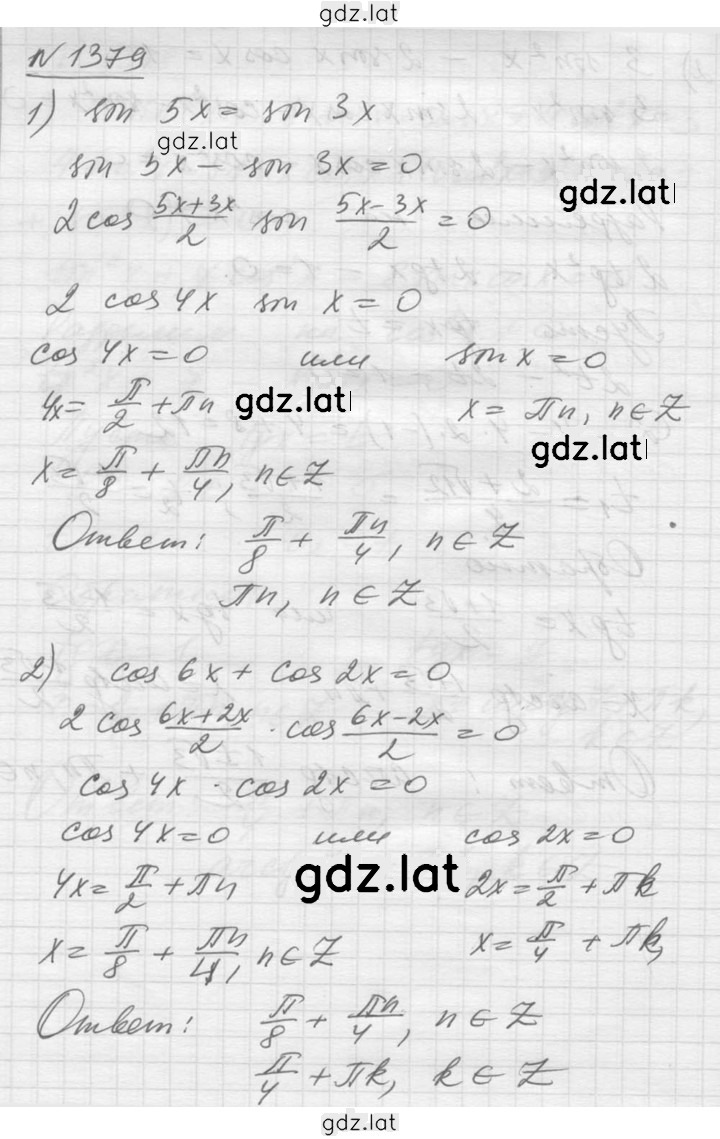 gdz.lat
№ 1379
1) sin 5x = sin 3x
gdz.lat
sin 5x − sin 3x = 0
gdz.lat
2 cos (5x+3x)/2 sin (5x−3x)/2 = 0
2 cos 4x sin x = 0
cos 4x = 0 или sin x = 0
4x = π/2 + πn gdz.lat x = πn, n ∈ Z
gdz.lat
x = π/8 + πn/4, n ∈ Z
Ответ: π/8 + πn/4, n ∈ Z
πn, n ∈ Z
2) cos 6x + cos 2x = 0
2 cos (6x+2x)/2 · cos (6x−2x)/2 = 0
cos 4x · cos 2x = 0
cos 4x = 0 или cos 2x = 0
4x = π/2 + πn gdz.lat 2x = π/2 + πk
x = π/8 + πn/4, n ∈ Z x = π/4 + πk,
Ответ: π/8 + πn/4, n ∈ Z
π/4 + πk, k ∈ Z
gdz.lat